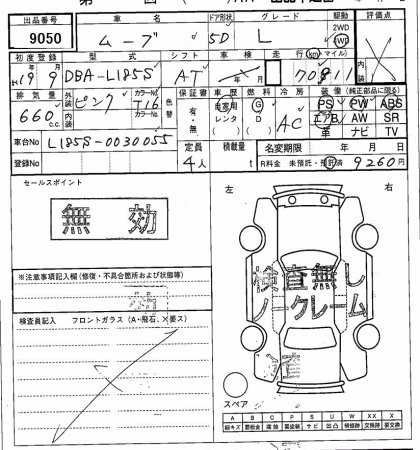 出品番号 車名 ドア形状 グレード 駆動 評価点
9050 ムーブ 5D L 2WD 4WD
初度登録 型式 シフト 車検 走行(km・マイル)
H19年9月 DBA-L185S AT 年 月 70911
排気量 外装 ピンク カラーNo. T16 色替 保証書 車歴 燃料 冷房 装備(純正部品に限る)
660 c.c. 内装 カラーNo. 有・無 自家用 レンタ G D AC PS PW ABS
エアB AW SR
革 ナビ TV
車台No L185S-0030055 定員 積載量 名変期限 年 月 日
登録No 4人 t R料金 未預託・預託済 9260円
セールスポイント 左 右
無効
検査無し
ノークレーム
※注意事項記入欄(修復・不具合箇所および状態等)
検査員記入 フロントガラス(A・飛石、×要ス)
スペア
A B C P S U W XX X